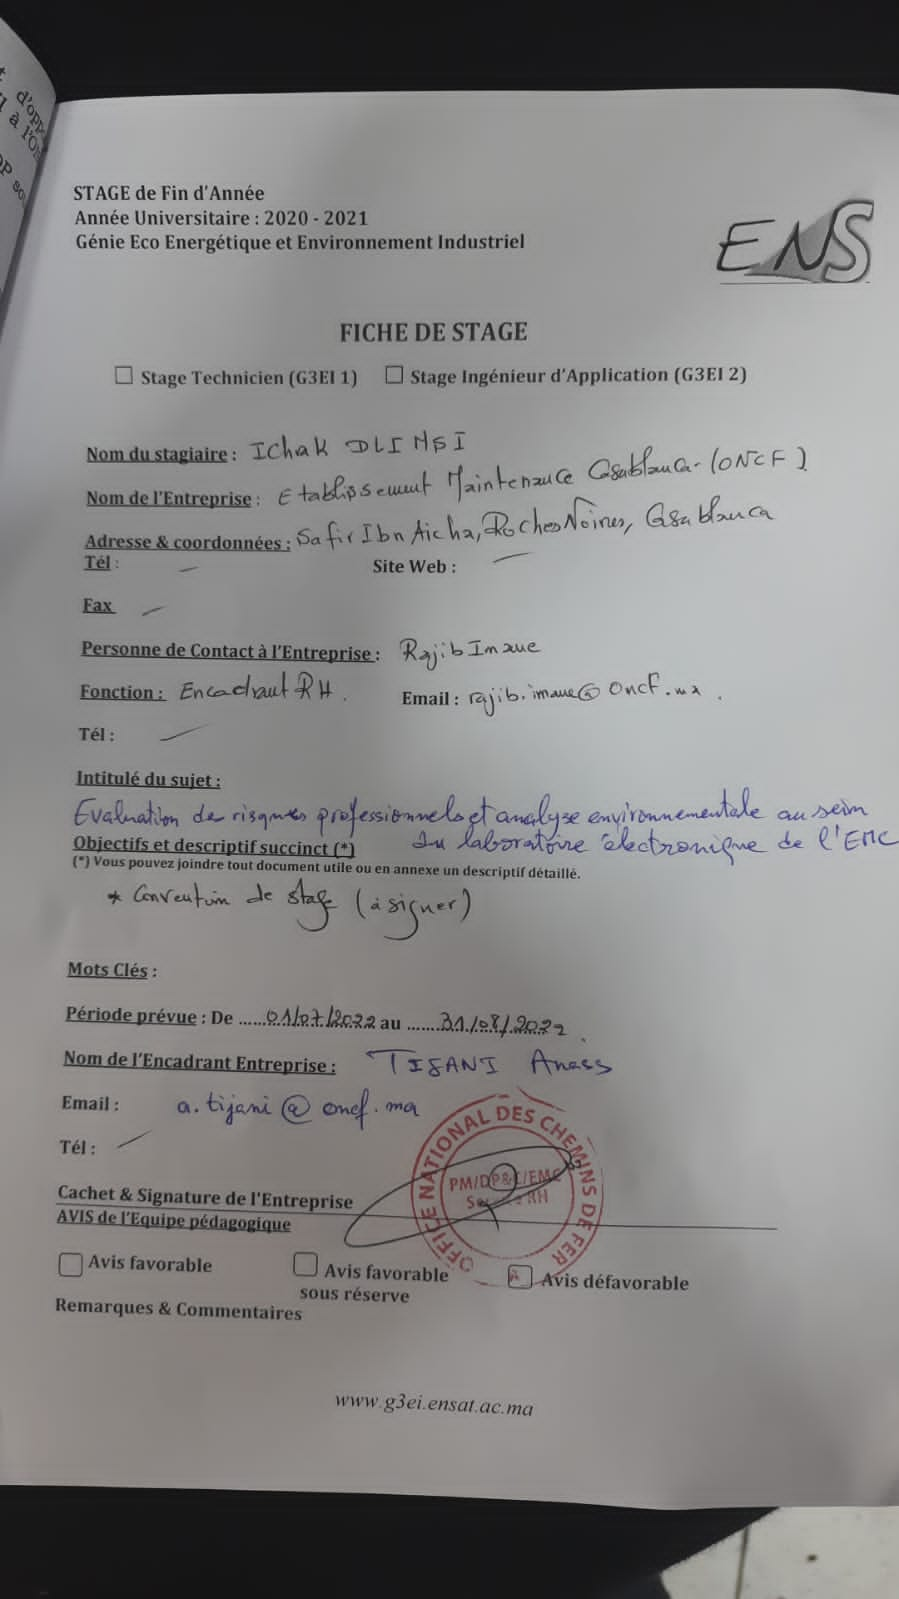 d'opp
à l'O
STAGE de Fin d'Année
Année Universitaire : 2020 - 2021
Génie Eco Energétique et Environnement Industriel
ENS
FICHE DE STAGE
☐ Stage Technicien (G3EI 1) ☐ Stage Ingénieur d'Application (G3EI 2)
Nom du stagiaire : Ichak DLIMSI
Nom de l'Entreprise : Etablissement Maintenance Casablanca (ONCF)
Adresse & coordonnées : Safir Ibn Aicha, Roches Noires, Casablanca
Tél : - Site Web : -
Fax -
Personne de Contact à l'Entreprise : Rajib Imane
Fonction : Encadrant RH. Email : rajib.imane@oncf.ma.
Tél : -
Intitulé du sujet :
Evaluation de risques professionnels et analyse environnementale au sein
du laboratoire électronique de l'EMC
Objectifs et descriptif succinct (*)
(*) Vous pouvez joindre tout document utile ou en annexe un descriptif détaillé.
* Convention de stage (à signer)
Mots Clés :
Période prévue : De ......01/07/2022 au .......31/08/2022.
Nom de l'Encadrant Entreprise : TIJANI Anass
Email : a.tijani@oncf.ma
Tél : -
OFFICE NATIONAL DES CHEMINS DE FER
PM/DP&C/EMC
RH
Cachet & Signature de l'Entreprise
AVIS de l'Equipe pédagogique
☐ Avis favorable ☐ Avis favorable sous réserve ☐ Avis défavorable
Remarques & Commentaires
www.g3ei.ensat.ac.ma